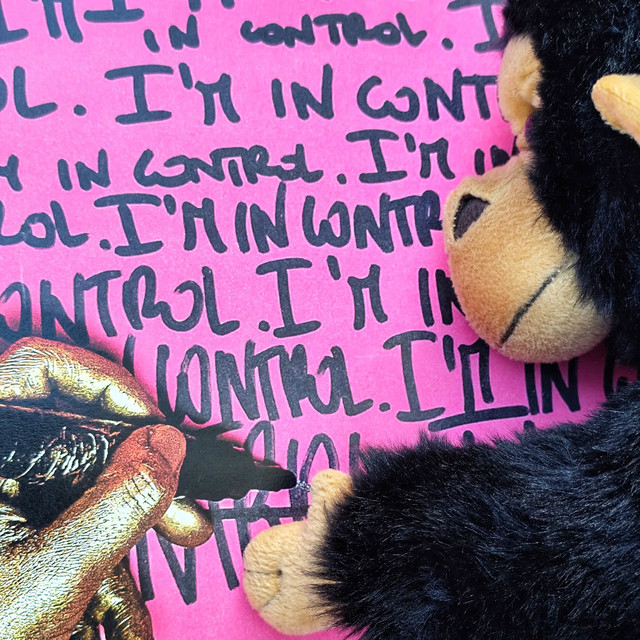 I'M I
IN CONTROL. I
OL. I'M IN CONT
M IN CONTROL. I'M IN
ROL. I'M IN CONTR
ONTROL. I'M IN
CONTROL. I'M IN C